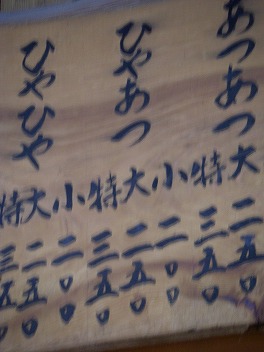 あつあつ
大 二五〇
特 三五〇
ひやあつ
小 二〇〇
大 二五〇
特 三五〇
ひやひや
小 二〇〇
大 二五〇
特 三五〇